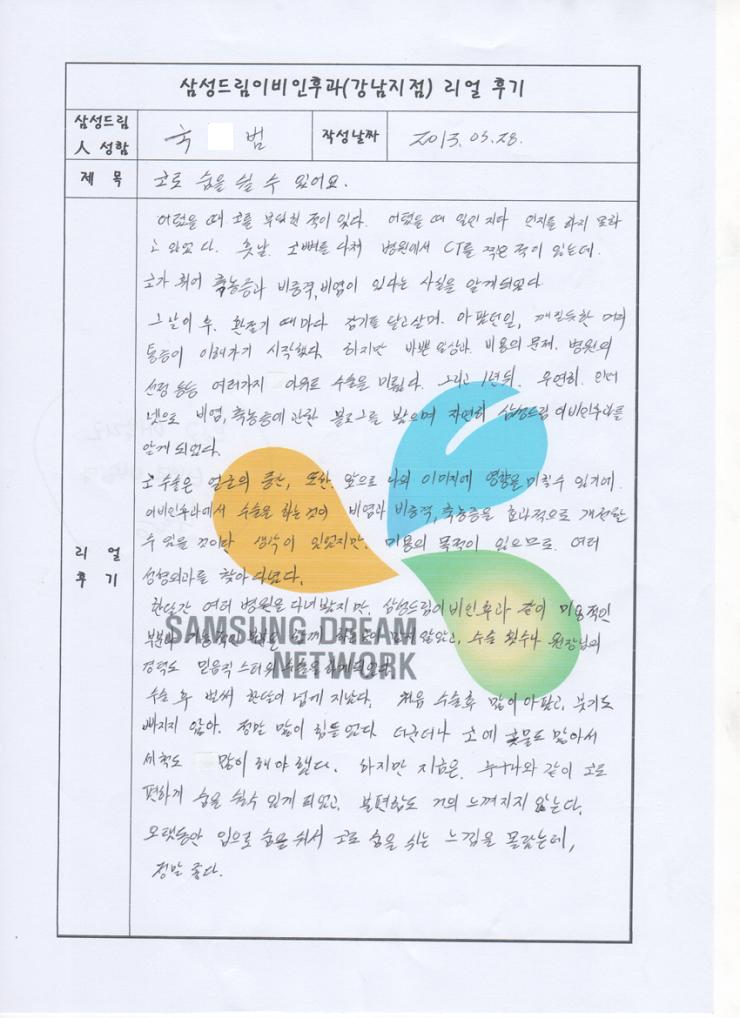 삼성드림이비인후과(강남지점) 리얼 후기
삼성드림
人 성함
국 범
작성날짜
2013.05.28.
제 목
코로 숨을 쉴 수 있어요.
리 얼
후 기
어렸을 때 코를 부딪힌 적이 있다. 어렸을 때 일인지라 인지를 하지 못하
고 있었다. 훗날 코뼈를 다쳐 병원에서 CT를 찍은 적이 있는데.
코가 휘어 축농증과 비중격, 비염이 있다는 사실을 알게되었다
그날이후. 환절기 때마다 감기를 달고살며. 아팠던일, 깨질듯한 머리
통증이 이해가기 시작했다. 하지만 바쁜 일상과. 비용의 문제. 병원의
선정 등등 여러가지 이유로 수술을 미뤘다. 그리고 1년뒤. 우연히. 인터
넷으로 비염, 축농증에 관한 블로그를 봤으며 자연히 삼성드림이비인후과를
알게 되었다.
코 수술은 얼굴의 중심, 또한. 앞으로 나의 이미지에 영향을 미칠수 있기에.
이비인후과에서 수술을 하는것이 비염과 비중격, 축농증을 효과적으로 개선할
수 있을 것이라 생각이 있었지만. 미용의 목적이 있으므로. 여러
성형외과를 찾아 다녔다.
한달간 여러 병원을 다녀봤지만, 삼성드림이비인후과 같이 미용적인
부분과 기능적인 함께 않았고, 수술 횟수나 원장님의
경력도 믿음직 스러워 수술을 하게되었다.
SAMSUNG DREAM
NETWORK
수술 후 벌써 한달이 넘게 지났다. 처음 수술후 많이 아팠고, 붓기도
빠지지 않아. 정말 많이 힘들었다. 더군더나 코에 콧물도 많아서
세척도 많이 해야 했다. 하지만 지금은. 누구나와 같이 코로
편하게 숨을 쉴수 있게 되었고, 불편함도 거의 느껴지지 않는다.
오랫동안 입으로 숨을 쉬어서 코로 숨을 쉬는 느낌을 몰랐는데,
정말 좋다.